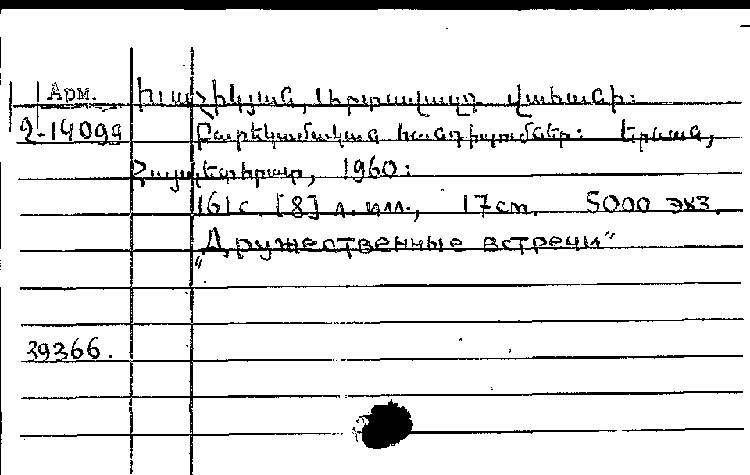 Арм. Խաչիկյան, Արտավազդ Վահանի:
2-14099 Բարեկամական հանդիպումներ: Երևան,
Հայպետհրատ, 1960:
161 с. [8] л. илл., 17 cm. 5000 экз.
"Дружественные встречи"
39366.